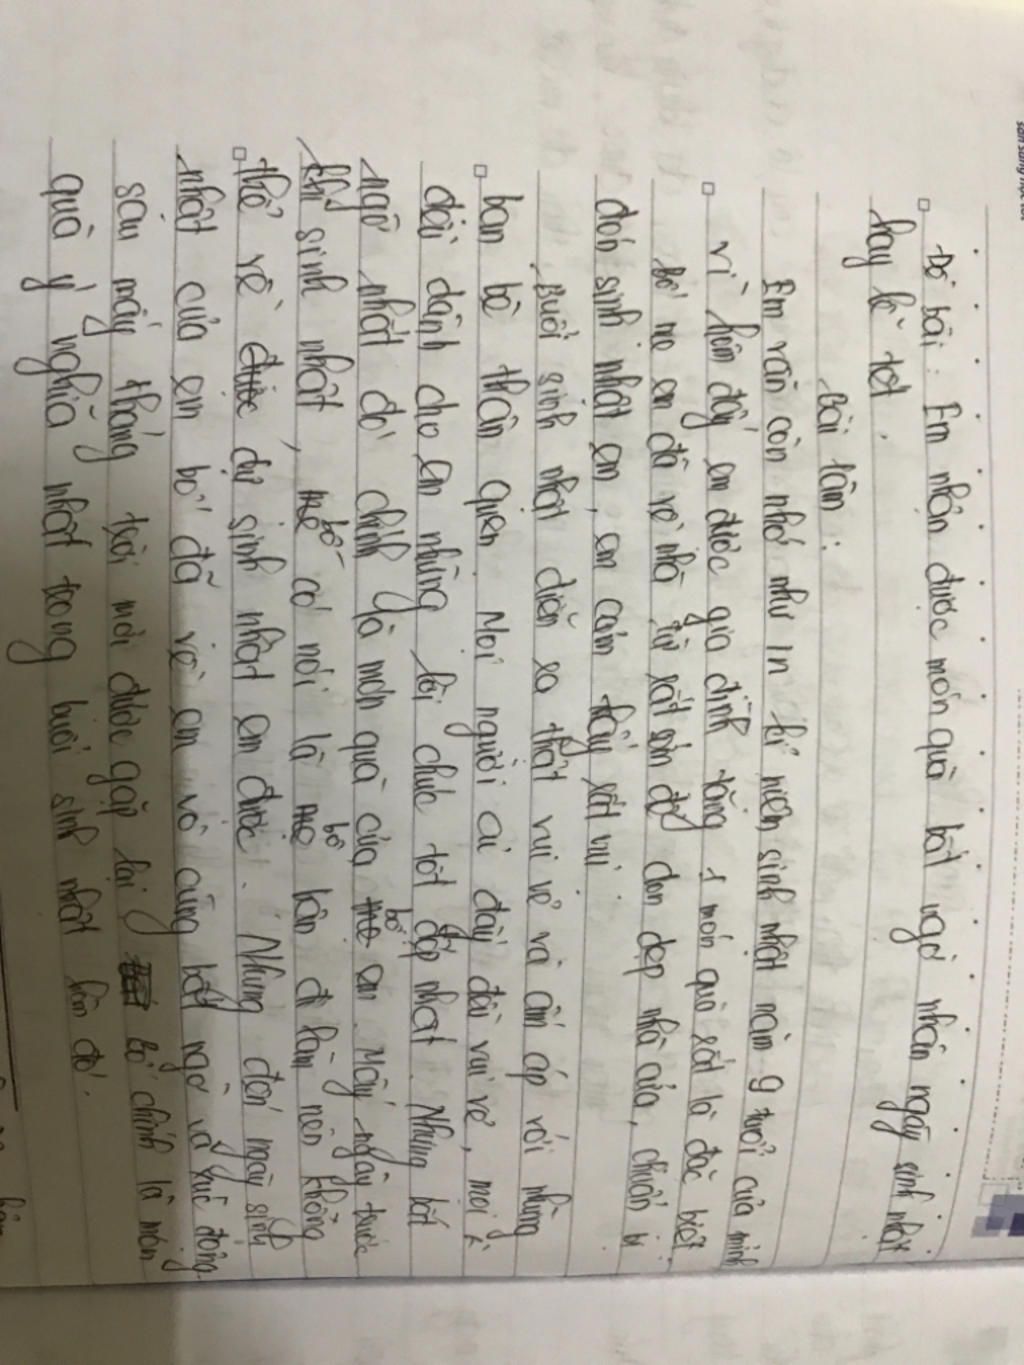 Đề bài: Em nhận được món quà bất ngờ nhân ngày sinh nhật
hay lễ tết.
Bài làm:
Em vẫn còn nhớ như in kỉ niệm sinh nhật năm 9 tuổi của mình
vì hôm đấy em được gia đình tặng 1 món quà rất là đặc biệt
Bố mẹ em đã về nhà từ rất sớm để dọn dẹp nhà cửa, chuẩn bị
đón sinh nhật em, em cảm thấy rất vui
Buổi sinh nhật diễn ra thật vui vẻ và ấm áp với những
bạn bè thân quen. Mọi người ai đấy đều vui vẻ, mọi
đều dành cho em những lời chúc tốt đẹp nhất. Nhưng bất
ngờ nhất đó chính là món quà của bố em. Mấy ngày trước
khi sinh nhật, bố có nói là bố bận đi làm nên không
thể về dự sinh nhật em được. Nhưng đến ngày sinh
nhật của em bố đã về em vô cùng bất ngờ và xúc động.
sau mấy tháng trời mới được gặp lại bố chính là món
quà ý nghĩa nhất trong buổi sinh nhật hôm đó.